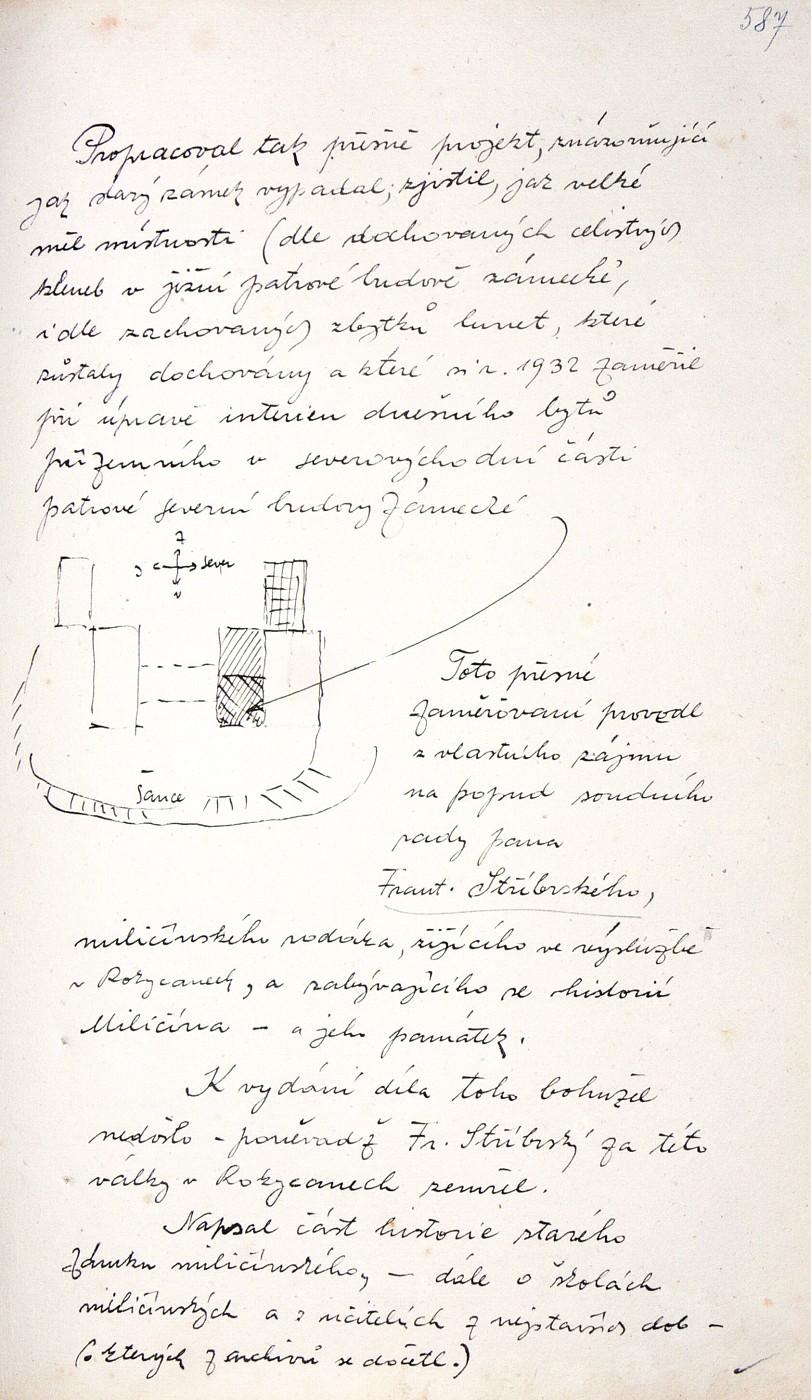 587
Propracoval tak přesně projekt, znázorňující
jak starý zámek vypadal, zjistil, jak velké
měl místnosti (dle dochovaných celistvých
kleneb v jižní patrové budově zámecké,
i dle zachovaných zbytků lunet, které
zůstaly dochovány a které si r. 1932 zaměřil
při úpravě interieu dnešního bytů
přízemního v severovýchodní části
patrové severní budovy zámecké
z
j sever
v
Šance
Toto přesné
zaměřování provedl
z vlastního zájmu
na popud soudního
rady pana
Frant. Stříbrského,
miličínského rodáka, žijícího ve výslužbě
v Rokycanech, a zabývajícího se historií
Miličína – a jeho památek.
K vydání díla toho bohužel
nedošlo – poněvadž Fr. Stříbrský za této
války v Rokycanech zemřel.
Napsal část historie starého
zámku miličínského, – dále o školách
miličínských a o učitelích z nejstarších dob –
(o kterých z archivů se dočetl.)